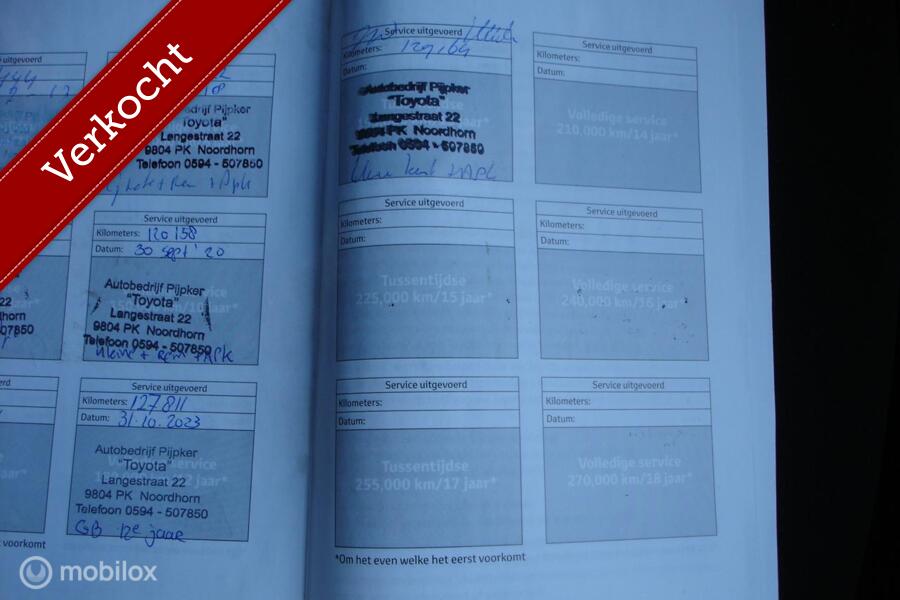 Verkocht
uitgevoerd
Autobedrijf Pijpker
"Toyota"
Langestraat 22
9804 PK Noordhorn
Telefoon 0594 - 507850
Service uitgevoerd
Kilometers: 120158
Datum: 30 sept '20
Autobedrijf Pijpker
"Toyota"
Langestraat 22
9804 PK Noordhorn
Telefoon 0594 - 507850
kleine + Rem + APK
Service uitgevoerd
Kilometers: 127811
Datum: 31-10-2023
Volledige service
Autobedrijf Pijpker
"Toyota"
Langestraat 22
9804 PK Noordhorn
Telefoon 0594 - 507850
GB 12e jaar
voorkomt
Service uitgevoerd
Kilometers:
Datum:
Autobedrijf Pijpker
"Toyota"
Langestraat 22
9804 PK Noordhorn
Telefoon 0594 - 507850
Service uitgevoerd
Kilometers:
Datum:
Volledige service
210,000 km/14 jaar*
Service uitgevoerd
Kilometers:
Datum:
Tussentijdse
225,000 km/15 jaar*
Service uitgevoerd
Kilometers:
Datum:
Volledige service
240,000 km/16 jaar*
Service uitgevoerd
Kilometers:
Datum:
Tussentijdse
255,000 km/17 jaar*
Service uitgevoerd
Kilometers:
Datum:
Volledige service
270,000 km/18 jaar*
*Om het even welke het eerst voorkomt
mobilox